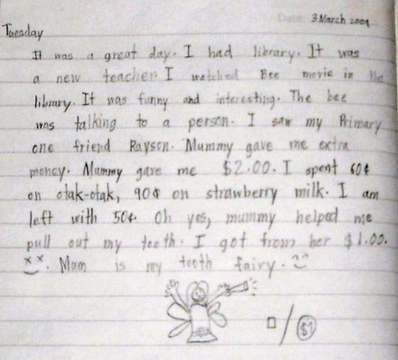 Date: 3 March 2009
Tuesday
It was a great day. I had library. It was
a new teacher. I watched Bee movie in the
library. It was funny and interesting. The bee
was talking to a person. I saw my Primary
one friend Rayson. Mummy gave me extra
money. Mummy gave me $2.00. I spent 60¢
on otak-otak, 90¢ on strawberry milk. I am
left with 50¢. Oh yes, mummy helped me
pull out my tooth. I got from her $1.00.
Mum is my tooth fairy.
$1